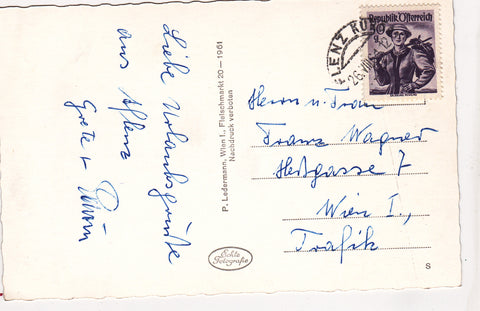 Liebe Urlaubsgrüße
aus Aflenz
Grete +
P. Ledermann, Wien I., Fleischmarkt 20 – 1961
Nachdruck verboten
Echte
Fotografie
FLENZ KURO
26.VII
Republik Österreich
Herrn u. Frau
Franz Wagner
Heßgasse 7
Wien I.,
Trafik
S